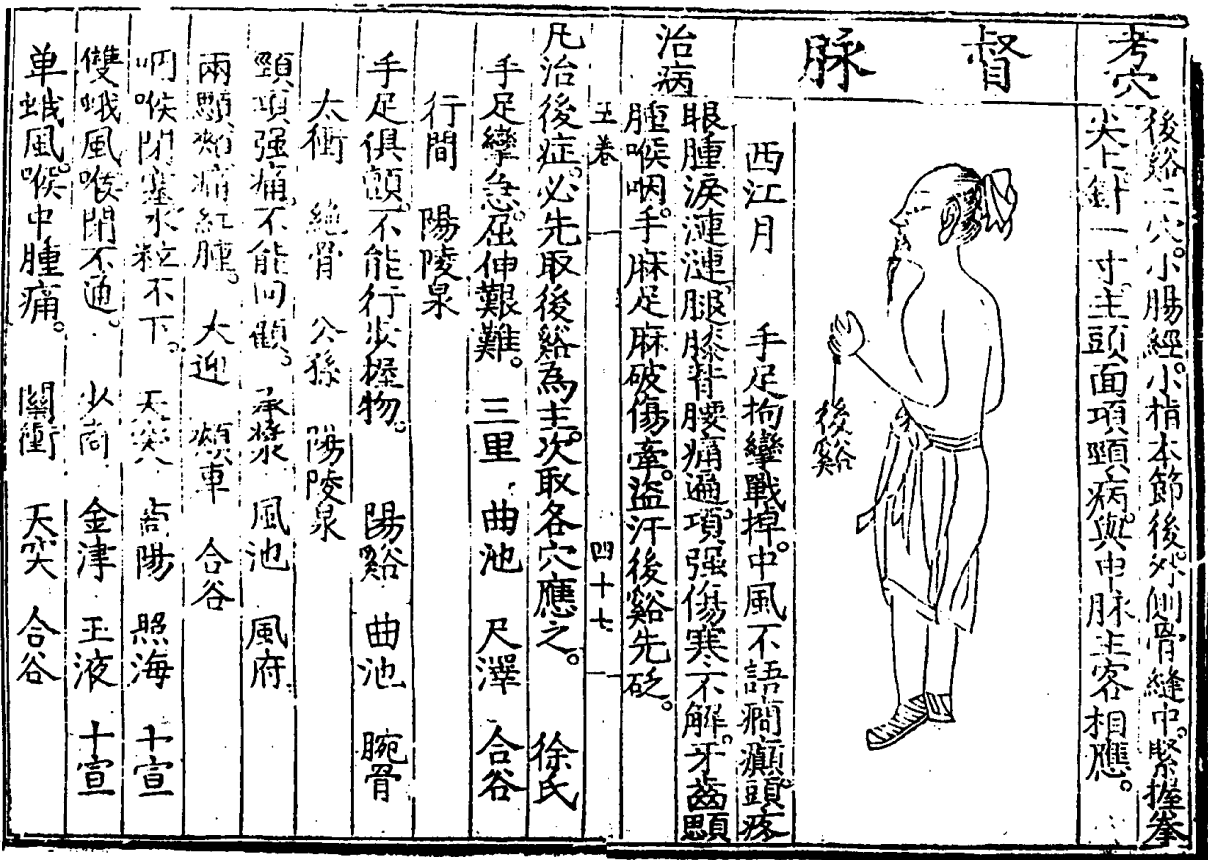 考穴
後谿二穴。小腸經。小指本節後外側骨縫中。緊握拳
尖上針一寸。主頭面項頸病。與申脉主客相應。
督脉
後谿
治病
西江月 手足拘攣戰掉。中風不語癇癲。頭疼
眼腫淚漣漣。腿膝背腰痛遍。項强傷寒不解。牙齒顋
腫喉咽。手麻足麻破傷牽。盜汗後谿先砭。
五卷 四十七
凡治後症。必先取後谿為主。次取各穴應之。 徐氏
手足攣急。屈伸艱難。 三里 曲池 尺澤 合谷
行間 陽陵泉
手足俱顫。不能行步握物。 陽谿 曲池 腕骨
太衝 絶骨 公孫 陽陵泉
頸項强痛。不能回顧。 承漿 風池 風府
兩顋頰痛紅腫。 大迎 頰車 合谷
咽喉閉塞水粒不下。 天突 商陽 照海 十宣
雙蛾風喉閉不通。 少商 金津 玉液 十宣
单蛾風。喉中腫痛。 關衝 天突 合谷